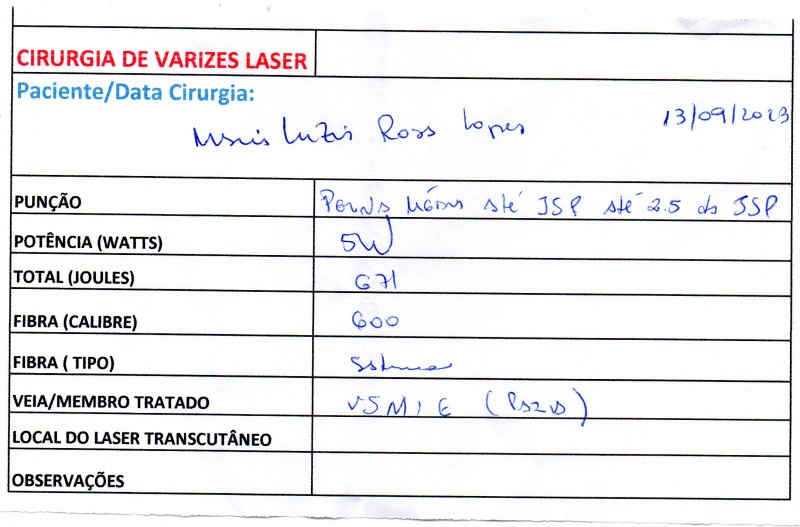 CIRURGIA DE VARIZES LASER
Paciente/Data Cirurgia:
Maria Luzia Rosa Lopes 13/09/2023
PUNÇÃO Perna até JSP até 2.5 da JSP
POTÊNCIA (WATTS) 5W
TOTAL (JOULES) 671
FIBRA (CALIBRE) 600
FIBRA ( TIPO)
VEIA/MEMBRO TRATADO
LOCAL DO LASER TRANSCUTÂNEO
OBSERVAÇÕES